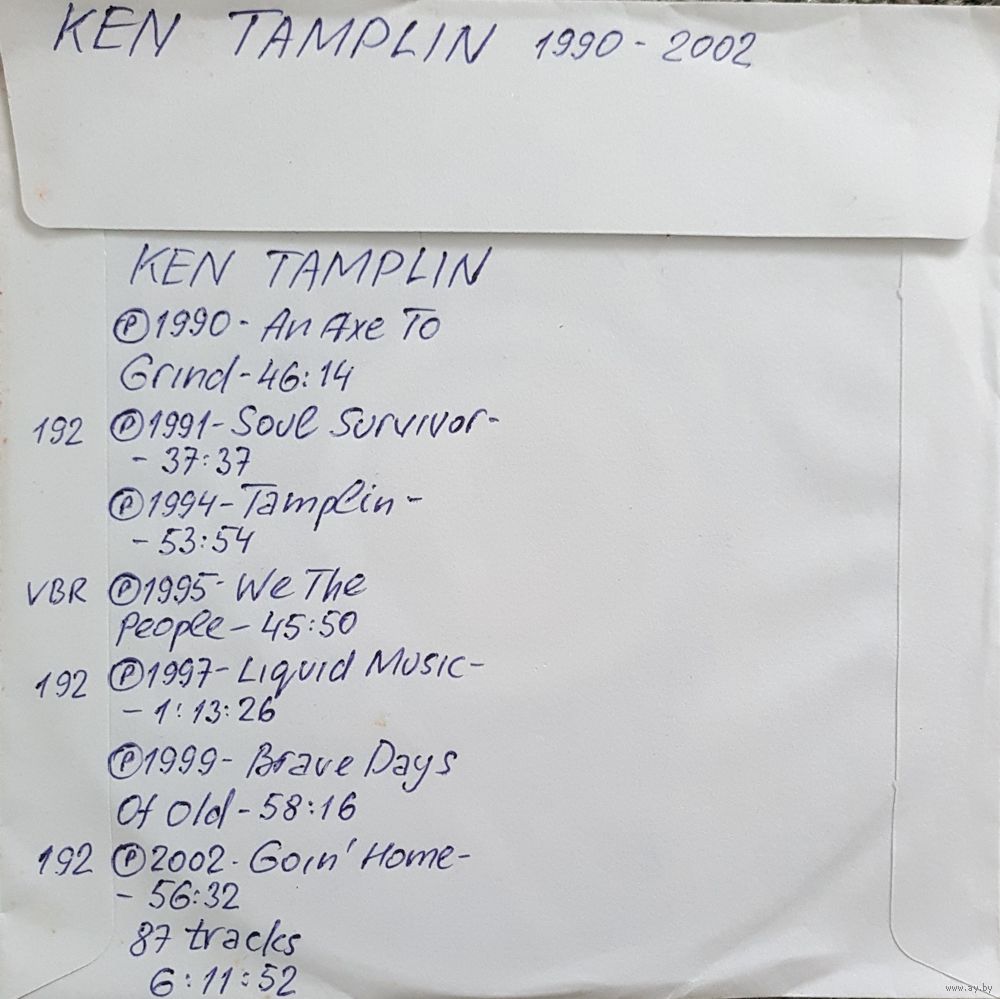 KEN TAMPLIN 1990 - 2002
KEN TAMPLIN
Ⓟ1990 - An Axe To
Grind - 46:14
192 Ⓟ1991 - Soul Survivor -
- 37:37
Ⓟ1994 - Tamplin -
- 53:54
VBR Ⓟ1995 - We The
People - 45:50
192 Ⓟ1997 - Liquid Music -
- 1:13:26
Ⓟ1999 - Brave Days
Of Old - 58:16
192 Ⓟ2002 - Goin' Home -
- 56:32
87 tracks
6:11:52
www.ay.by